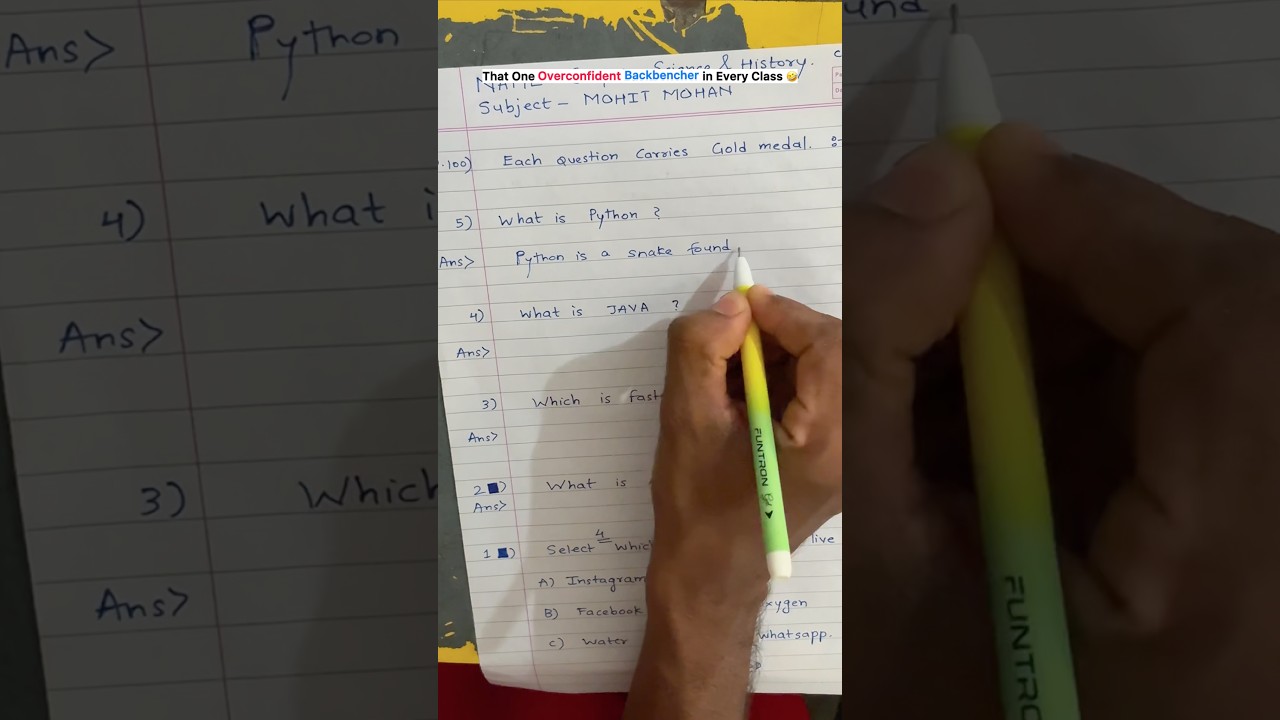 That One Overconfident Backbencher in Every Class 🤣
Science & History.
Subject - MOHIT MOHAN
.100) Each question Carries Gold medal. :-
5) What is Python ?
Ans> Python is a snake found
4) What is JAVA ?
Ans>
3) Which is fast
Ans>
2 ) What is
Ans>
1 ) Select 4 Which live
A) Instagram
B) Facebook xygen
C) Water Whatsapp.
FUNTRON
Ans> Python
4) What i
Ans>
3) Which
Ans>
und
FUNTRO